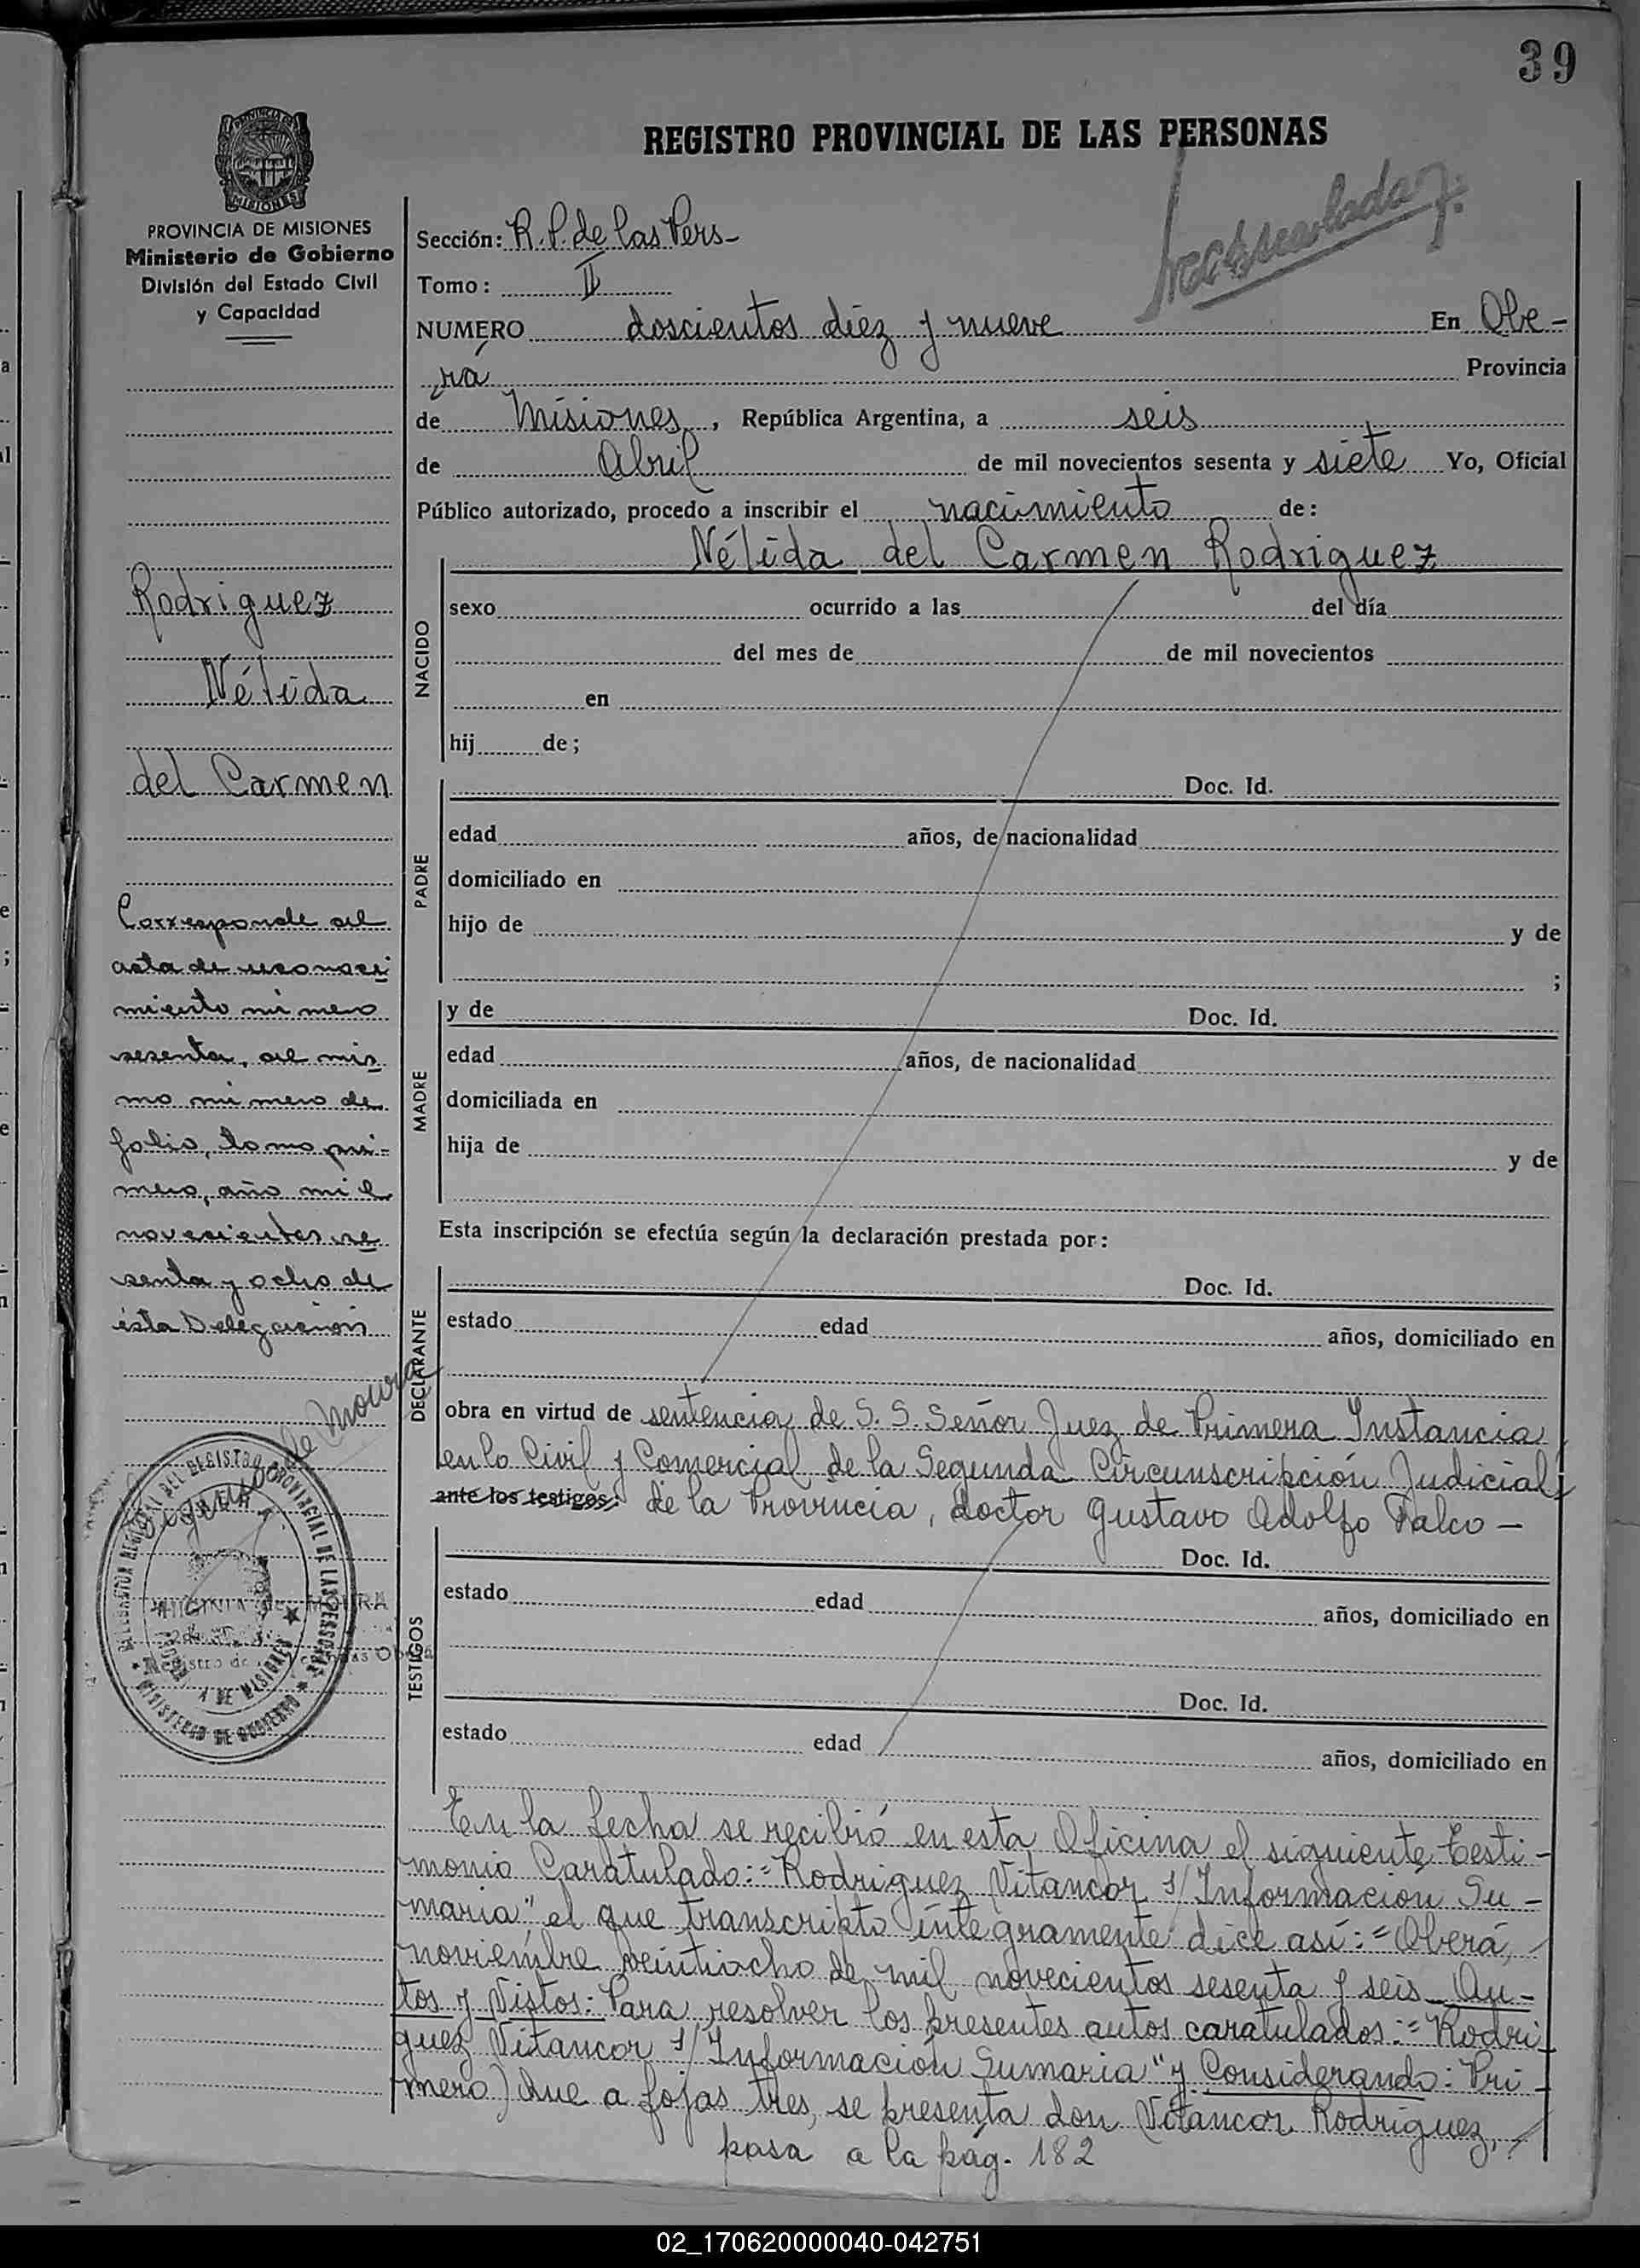 39
REGISTRO PROVINCIAL DE LAS PERSONAS
PROVINCIA DE MISIONES
Ministerio de Gobierno
División del Estado Civil
y Capacidad
Rodriguez
Nélida
del Carmen
Corresponde al
acta de reconoci
miento número
sesenta, al mis
mo número de
folio, tomo pri-
mero, año mil
novecientos se
senta y ocho de
ésta Delegación
de Moura
Sección: R. P. de las Pers-
Tomo: II
NUMERO doscientos diez y nueve En Obe-
rá Provincia
de Misiones, República Argentina, a seis
de Abril de mil novecientos sesenta y siete Yo, Oficial
Público autorizado, procedo a inscribir el nacimiento de:
Nélida del Carmen Rodriguez
NACIDO
sexo ocurrido a las del día
del mes de de mil novecientos
en
hij de;
PADRE
Doc. Id.
edad años, de nacionalidad
domiciliado en
hijo de y de
;
MADRE
y de Doc. Id.
edad años, de nacionalidad
domiciliada en
hija de y de
Esta inscripción se efectúa según la declaración prestada por:
DECLARANTE
Doc. Id.
estado edad años, domiciliado en
obra en virtud de sentencia de S. S. Señor Juez de Primera Instancia
en lo Civil y Comercial de la Segunda Circunscripción Judicial
ante los testigos: de la Provincia, doctor Gustavo Adolfo Falco-
TESTIGOS
Doc. Id.
estado edad años, domiciliado en
Doc. Id.
estado edad años, domiciliado en
En la fecha se recibió en esta Oficina el siguiente Testi-
monio Caratulado:="Rodriguez Vitancor s/Información Su-
maria" el que transcripto íntegramente dice así:=Oberá,
noviembre veintiocho de mil novecientos sesenta y seis. Au-
tos y Vistos: Para resolver los presentes autos caratulados:="Rodri
guez Vitancor s/Información Sumaria" y Considerando: Pri-
mero) Que a fojas tres, se presenta don Vitancor Rodriguez,
pasa a la pág. 182
02_170620000040-042751